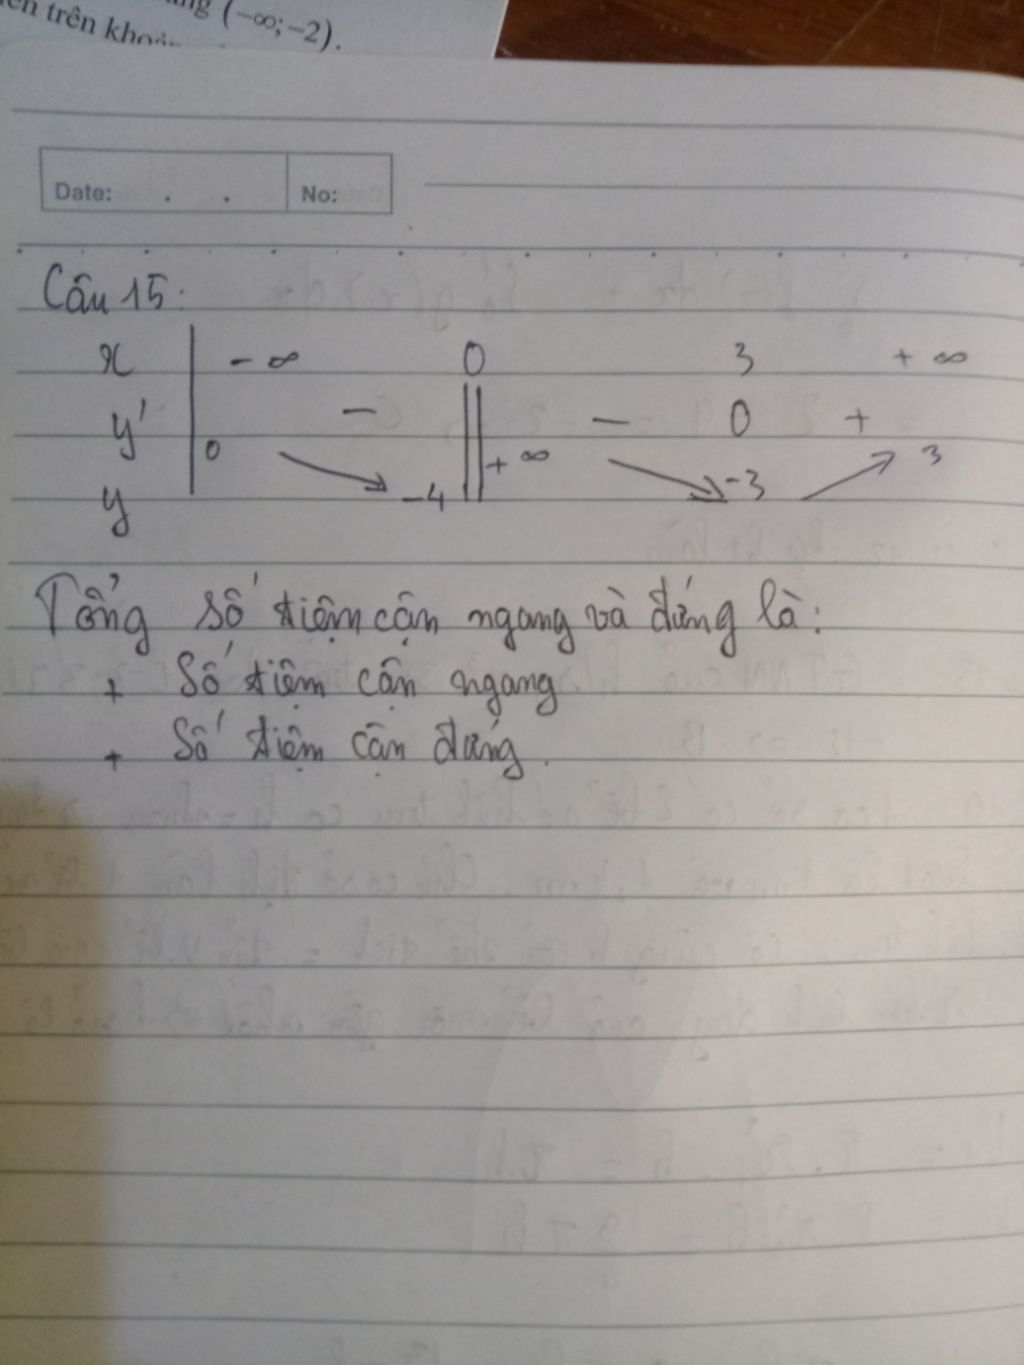 (−∞;−2).
trên
Date: . . No:
Câu 15:
x − ∞ 0 3 + ∞
y' − − 0 +
0 + ∞ 3
y −4 −3
Tổng số tiệm cận ngang và đứng là:
+ Số tiệm cận ngang
+ Số tiệm cận đứng.